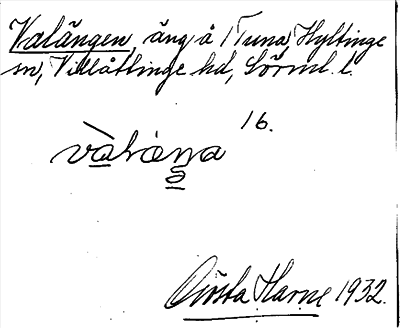 Valängen, äng å Tuna, Hyltinge
sn, Villåttinge hd, Sörml. l.
16.
Gösta Harne 1932.